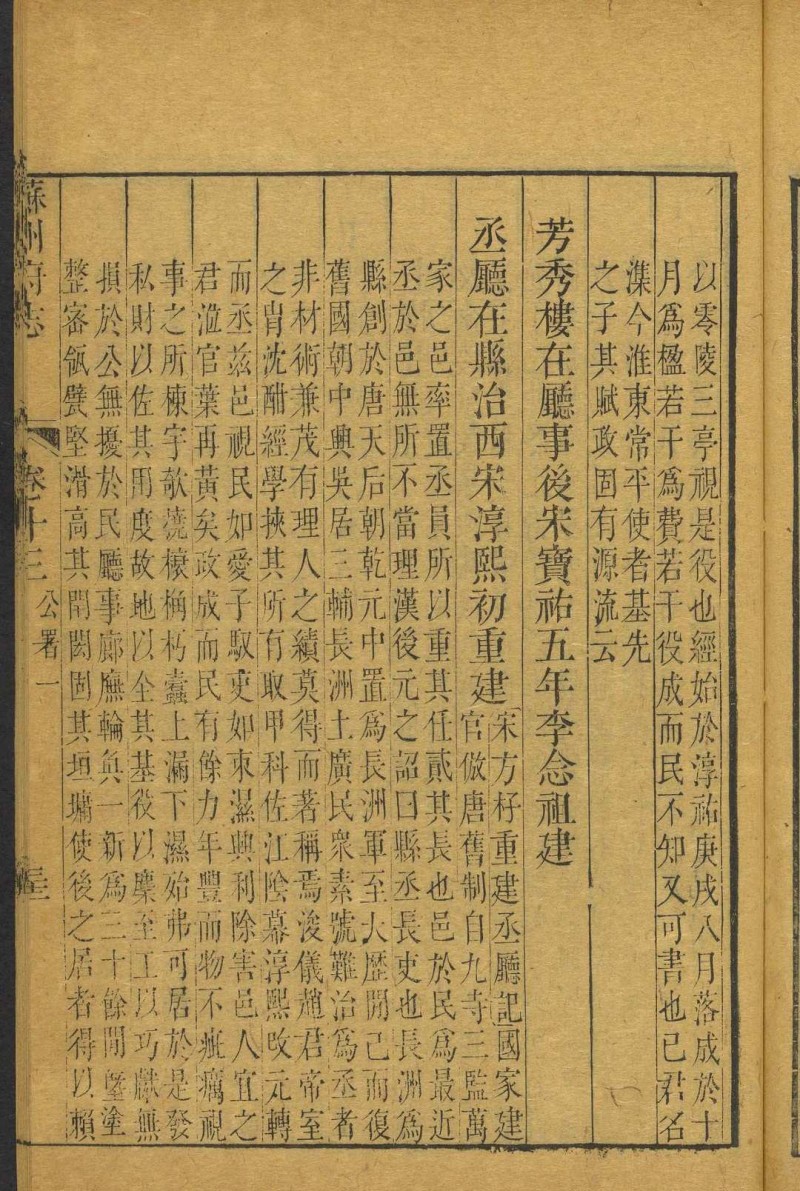 以零陵三亭視是役也經始於淳祐庚戌八月落成於十
月爲楹若干爲費若干役成而民不知又可書也已君名
潗今淮東常平使者基先
之子其賦政固有源流云
芳秀樓在廳事後宋寶祐五年李念祖建
丞廳在縣治西宋淳熙初重建
宋方杍重建丞廳記國家建
官倣唐舊制自九寺三監萬
家之邑率置丞員所以重其任貳其長也邑於民爲最近
丞於邑無所不當理漢後元之詔曰縣丞長吏也長洲爲
縣創於唐天后朝乾元中置爲長洲軍至大歷間已而復
舊國朝中興吳居三輔長洲土廣民衆素號難治爲丞者
非材術兼茂有理人之績莫得而著稱焉浚儀趙君帝室
之胄沈酣經學挾其所有取甲科佐江陰幕淳熙改元轉
而丞茲邑視民如愛子馭吏如束濕興利除害邑人宜之
君涖官葉再黃矣政成而民有餘力年豐而物不疵癘視
事之所棟宇欹撓榱桷朽蠹上漏下濕始弗可居於是發
私財以佐其用度故地以全其基役以麇至工以巧獻無
損於公無擾於民廳事廊廡輪奐一新爲三十餘間墍塗
整窑瓴甓堅滑高其閈閎固其垣墉使後之居者得以賴
蘇州府志
卷二十三
公署一
三